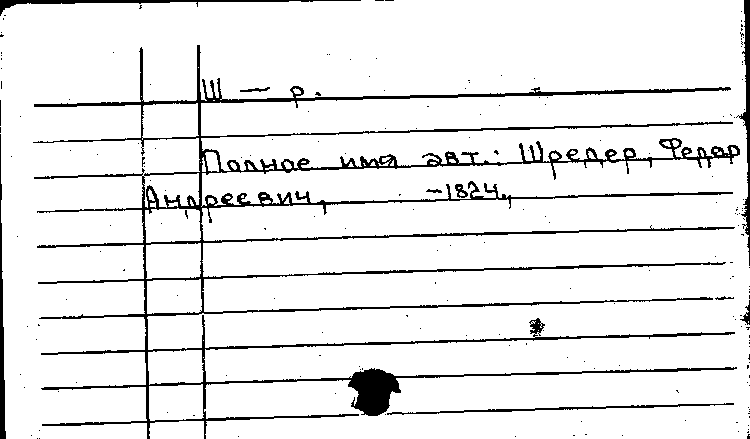 Ш — р.
Полное имя авт.: Шредер, Федор
Андреевич, -1824.,